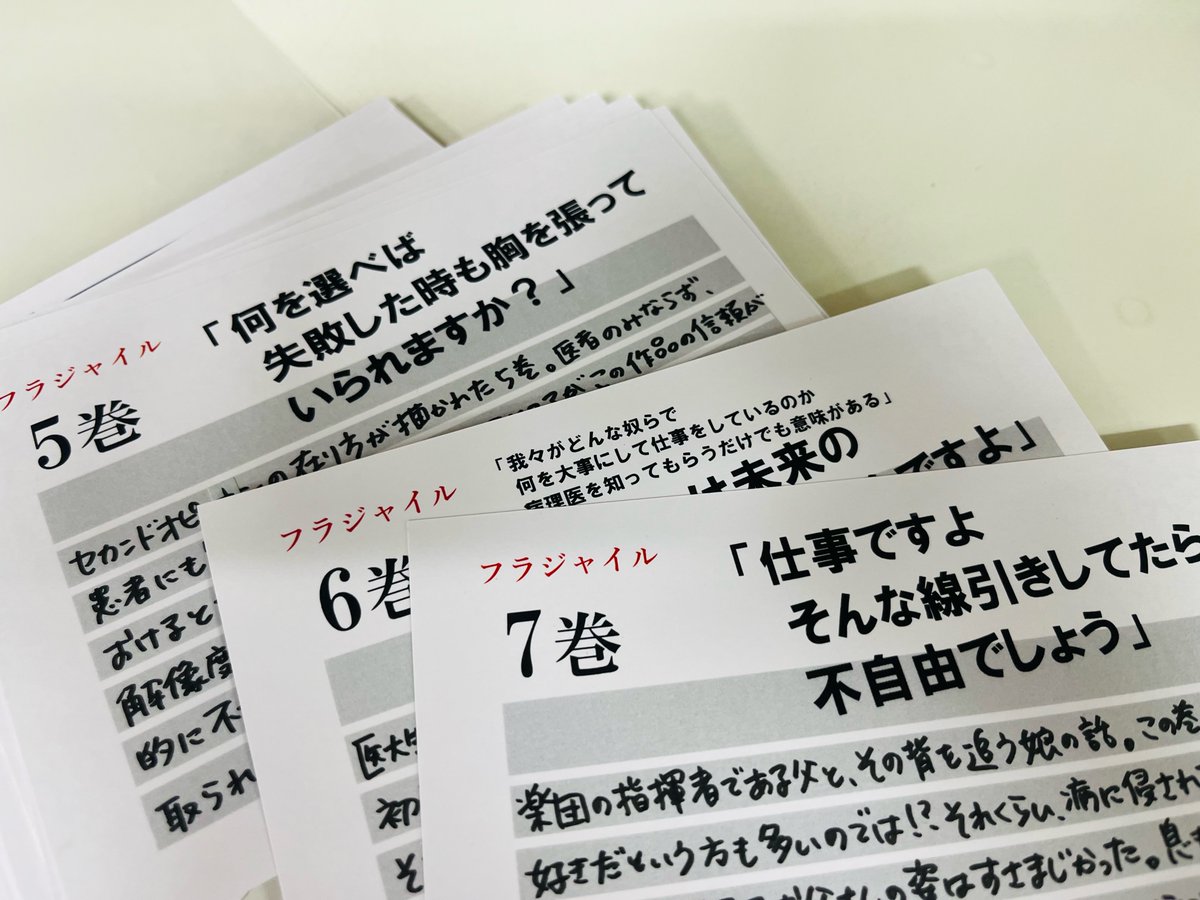 フラジャイル
5巻
「何を選べば
失敗した時も胸を張って
いられますか？」
の在り方が描かれた5巻。医者のみならず、
セカンドオピ
この作品の信頼が
患者にも
おけると
解像度
的に不
取られ
フラジャイル
6巻
「我々がどんな奴らで
何を大事にして仕事をしているのか
病理医を知ってもらうだけでも意味がある」
は未来の
ですよ」
医大
初
そ
フラジャイル
7巻
「仕事ですよ
そんな線引きしてたら
不自由でしょう」
楽団の指揮者である父と、その背を追う娘の話。この巻
好きだという方も多いのでは!?それくらい、病に侵され
父さんの姿はすさまじかった。息